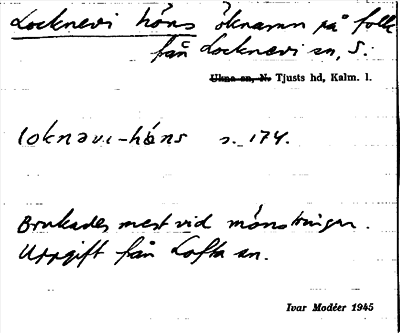 Locknevi höns öknamn på folk
från Locknevi sn, S.
Ukna sn, N. Tjusts hd, Kalm. l.
loknəvı-hǿns s. 174.
Brukades mest vid mönstringar.
Uppgift från Lofta sn.
Ivar Modéer 1945